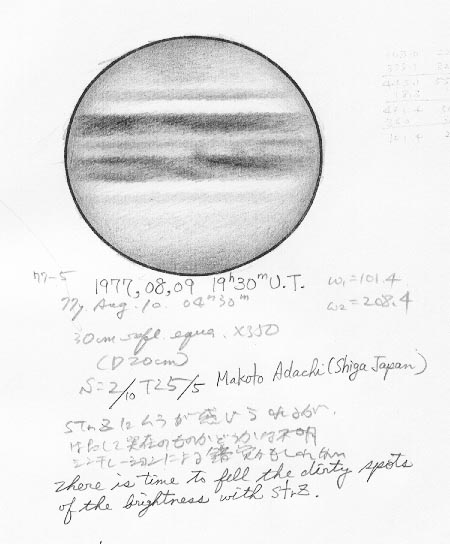 77-5 1977,08,09 19h30m U.T. ω1=101.4
77, Aug. 10. 04h30m ω2=208.4
30cm refl. equa. ×350
(D20cm)
S=2/10 T2.5/5 Makoto Adachi (Shiga Japan)
STrZにムラが感じられるが、
はたして実在のものかどうかは不明
シンチレーションによる錯覚かもしれない
There is time to fell the dirty spots
of the brightness with STrZ.